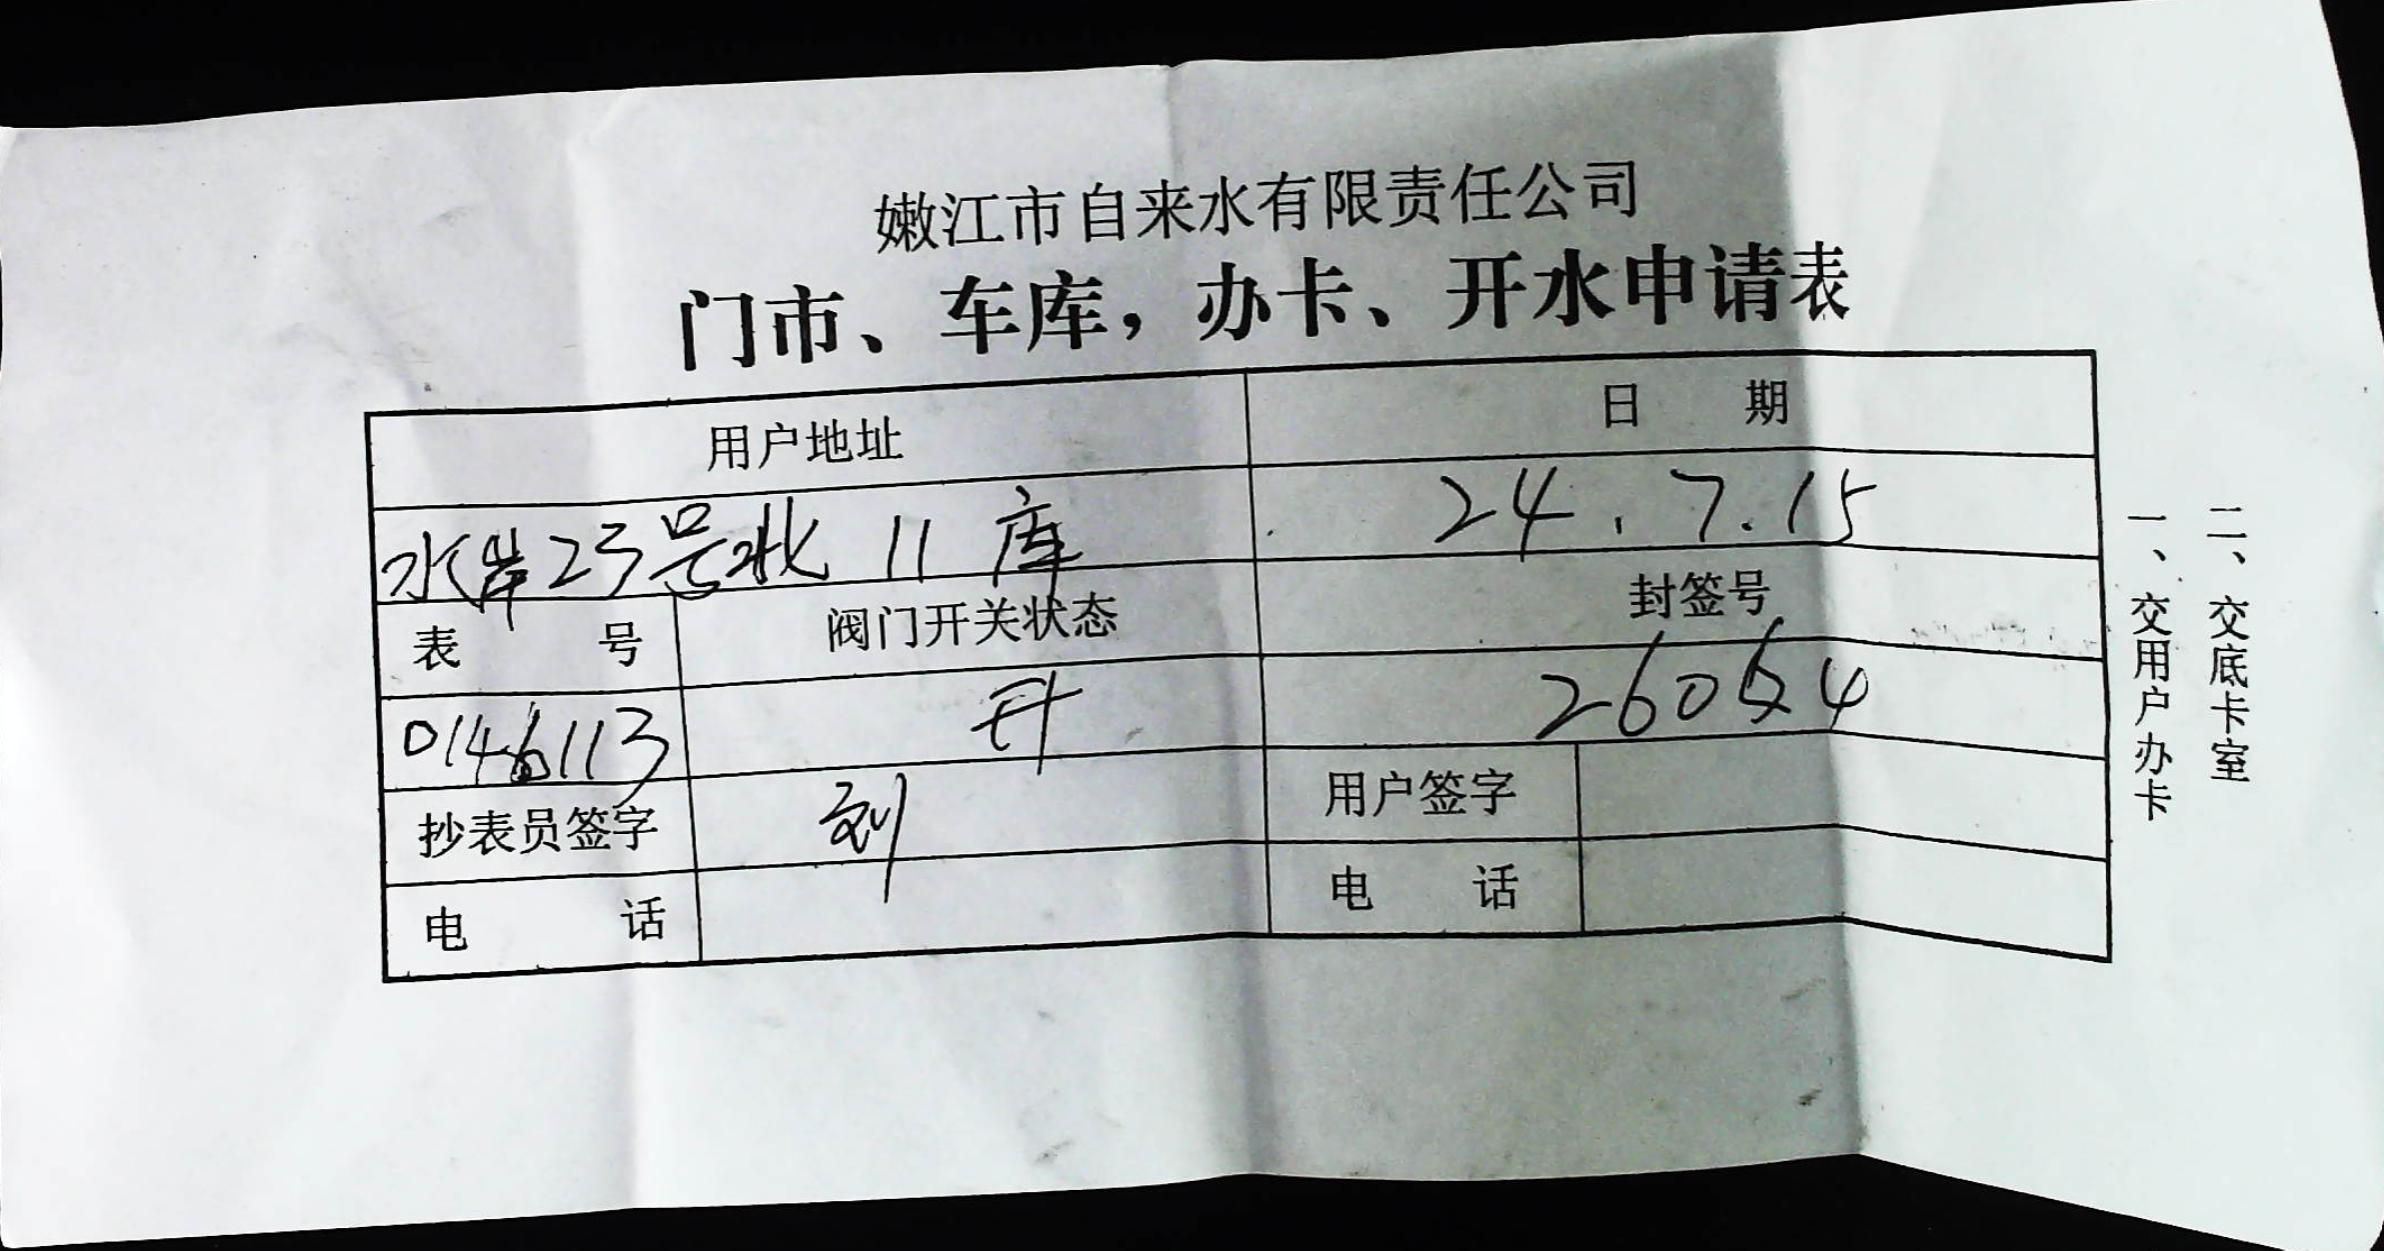 嫩江市自来水有限责任公司
门市、车库，办卡、开水申请表
用户地址 日 期
水岸23号北 11 库 24.7.15
表 号 阀门开关状态 封签号
0146113 开
抄表员签字 刘 用户签字
电 话 电 话
一、交用户办卡
二、交底卡室